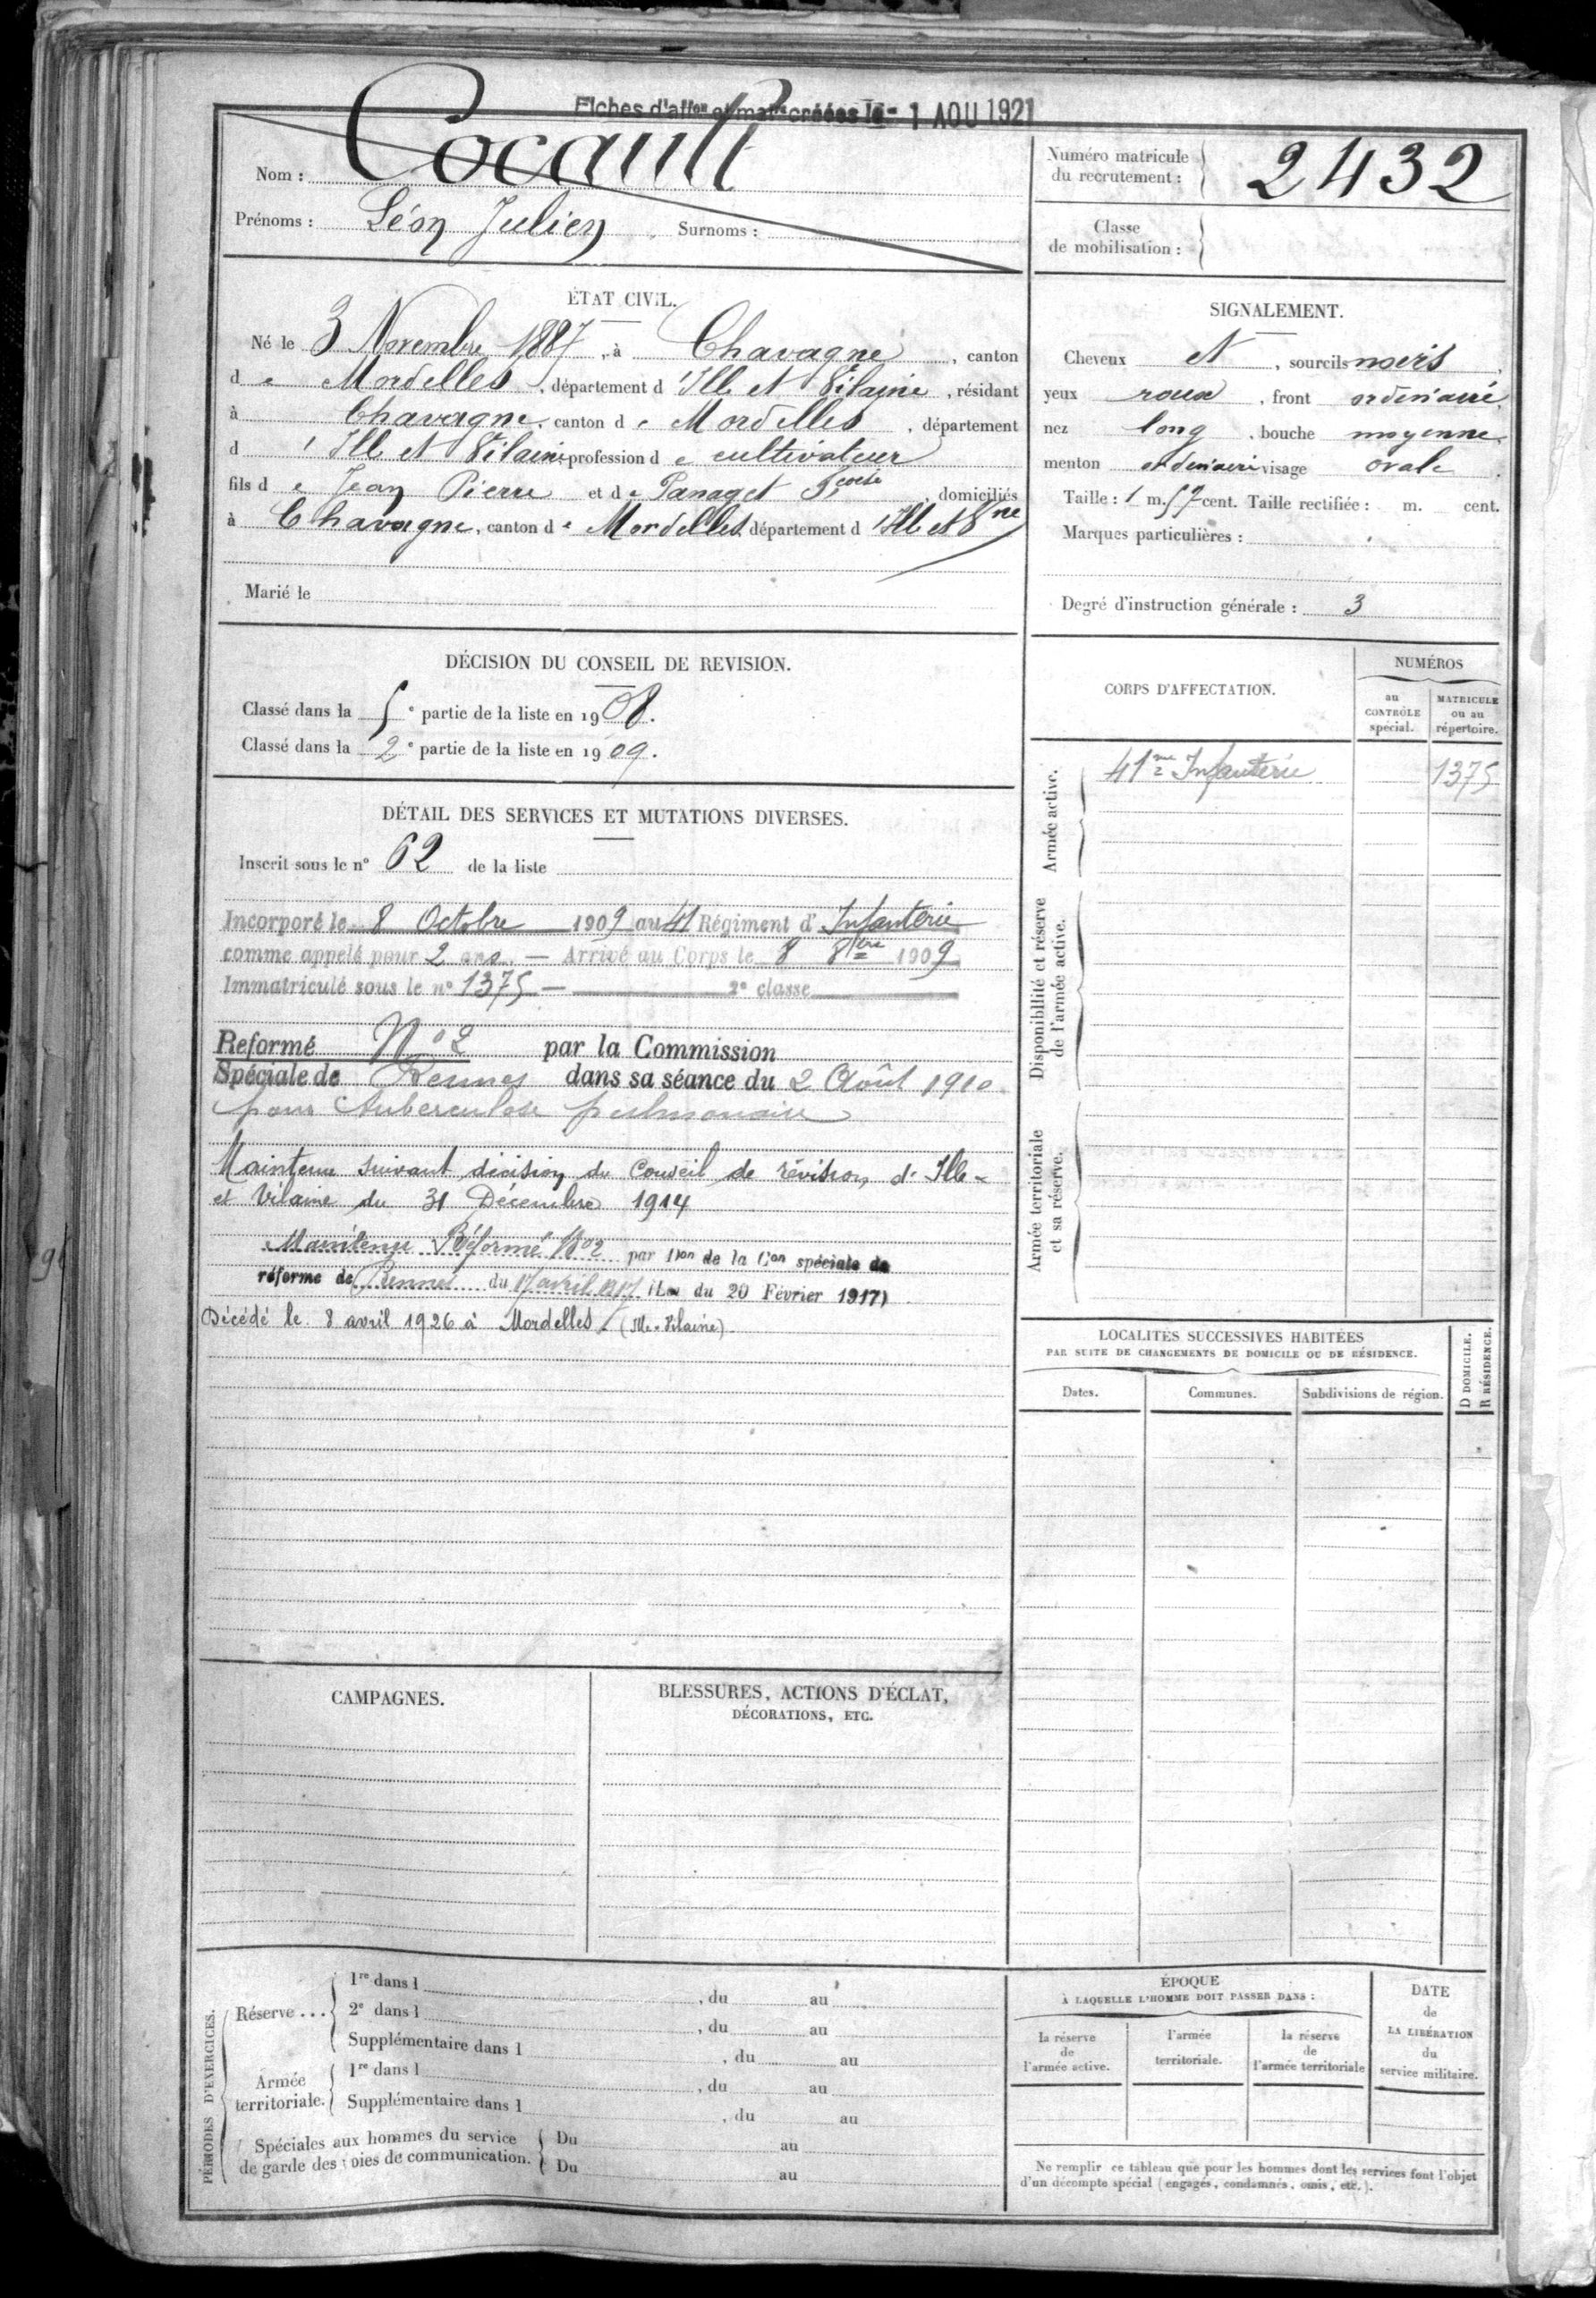 Fiches d'aff^on et mat^le créées le - 1 AOU 1921
Nom : Cocault
Prénoms : Léon Julien Surnoms :
Numéro matricule du recrutement : 2432
Classe de mobilisation :
ÉTAT CIVIL.
Né le 3 Novembre 1887, à Chavagne, canton
de Mordelles, département d'Ille et Vilaine, résidant
à Chavagne, canton de Mordelles, département
d'Ille et Vilaine profession de cultivateur
fils de Jean Pierre et de Panaget Fçoise, domiciliés
à Chavagne, canton de Mordelles, département d'Ille et Vne
Marié le
SIGNALEMENT.
Cheveux et, sourcils noirs,
yeux roux, front ordinaire,
nez long, bouche moyenne,
menton ordinaire visage ovale.
Taille : 1 m. 57 cent. Taille rectifiée : m. cent.
Marques particulières :
Degré d'instruction générale : 3
DÉCISION DU CONSEIL DE REVISION.
Classé dans la 5e partie de la liste en 1908.
Classé dans la 2e partie de la liste en 1909.
DÉTAIL DES SERVICES ET MUTATIONS DIVERSES.
Inscrit sous le n° 62 de la liste
Incorporé le 8 Octobre 1909 au 41 Régiment d'Infanterie
comme appelé pour 2 ans. — Arrivé au Corps le 8 8bre 1909
Immatriculé sous le n° 1375 — 2e classe
Reformé N° 2 par la Commission
Spéciale de Rennes dans sa séance du 2 Août 1910
pour tuberculose pulmonaire
Maintenu suivant décision du Conseil de révision d'Ille-
et Vilaine du 31 Décembre 1914
Maintenu Réformé N° 2 par Don de la Con spéciale de
réforme de Rennes du 17 avril 1917 (Loi du 20 Février 1917)
Décédé le 8 avril 1926 à Mordelles (Ille-Vilaine)
CORPS D'AFFECTATION.
NUMÉROS
au CONTRÔLE spécial.
MATRICULE ou au répertoire.
Armée active.
41me Infanterie 1375
Disponibilité et réserve de l'armée active.
Armée territoriale et sa réserve.
LOCALITÉS SUCCESSIVES HABITÉES
PAR SUITE DE CHANGEMENTS DE DOMICILE OU DE RÉSIDENCE.
Dates. Communes. Subdivisions de région.
D DOMICILE.
R RÉSIDENCE.
CAMPAGNES.
BLESSURES, ACTIONS D'ÉCLAT,
DÉCORATIONS, ETC.
PÉRIODES D'EXERCICES.
Réserve ...
1re dans l , du au
2e dans l , du au
Supplémentaire dans l , du au
Armée territoriale.
1re dans l , du au
Supplémentaire dans l , du au
Spéciales aux hommes du service
de garde des voies de communication.
Du au
Du au
ÉPOQUE
À LAQUELLE L'HOMME DOIT PASSER DANS :
la réserve de l'armée active.
l'armée territoriale.
la réserve de l'armée territoriale
DATE de LA LIBÉRATION du service militaire.
Ne remplir ce tableau que pour les hommes dont les services font l'objet
d'un décompte spécial (engagés, condamnés, omis, etc.).